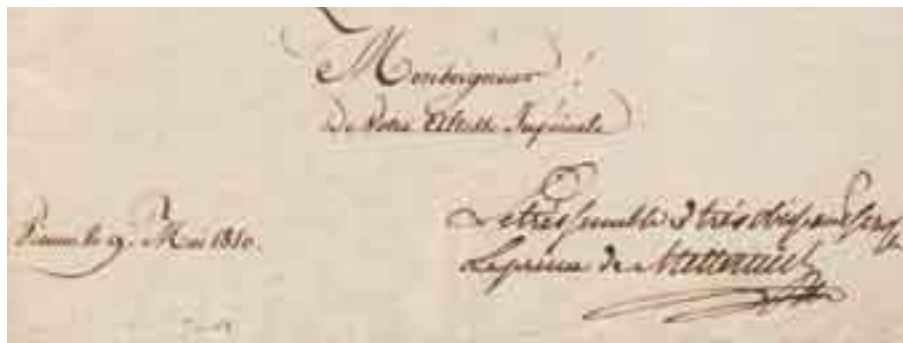 Monseigneur !
De Votre Altesse Impériale
Vienne le 9. Mai 1810.
Le très humble & très obéissant
Le prince de Metternich